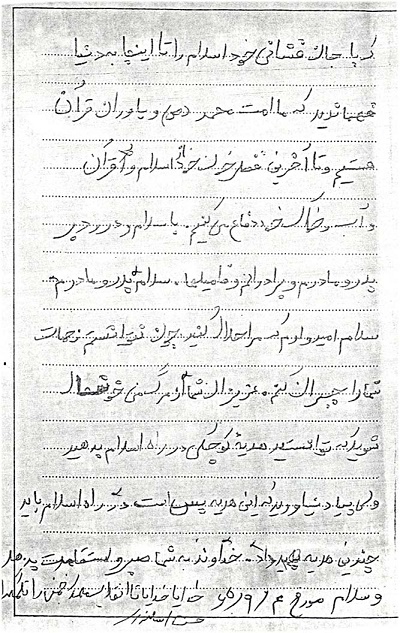 که با جان فشانی خود اسلام را تا اینجا به دنیا
فهماندید که ما امت محمد (ص) و یاوران قرآن
هستیم و تا آخرین قطره خون خود از اسلام و قرآن
و آب و خاک خود دفاع می‌کنیم. با سلام و درود بر
پدر و مادرم و برادرانم و فامیلها. سلام پدر و مادرم
سلام امیدوارم که مرا حلال کنید چون نتوانستم زحمات
شما را جبران کنم. عزیزان شما از مرگ من خوشحال
شوید که توانستید هدیهٔ کوچکی در راه اسلام بدهید
ولی بیاد دنیا ورید که این هدیه پس است در راه اسلام باید
چندین هدیه باید داد. خداوند به شما صبر و استقامت بدهد
و سلام مورخ خدایا خدایا تا انقلاب مهدی خمینی را نگهدار